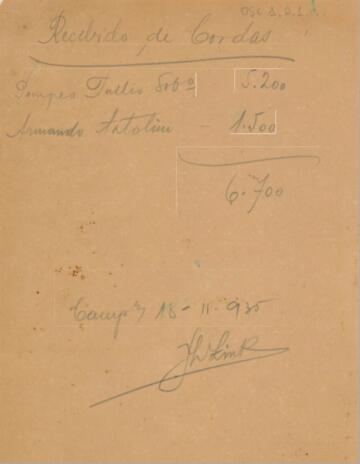 Recibido de Cordas
Pompeo Tullio Sobº 5.200
Armando Artolini — 1.500
6.700
Camp 18-11-935